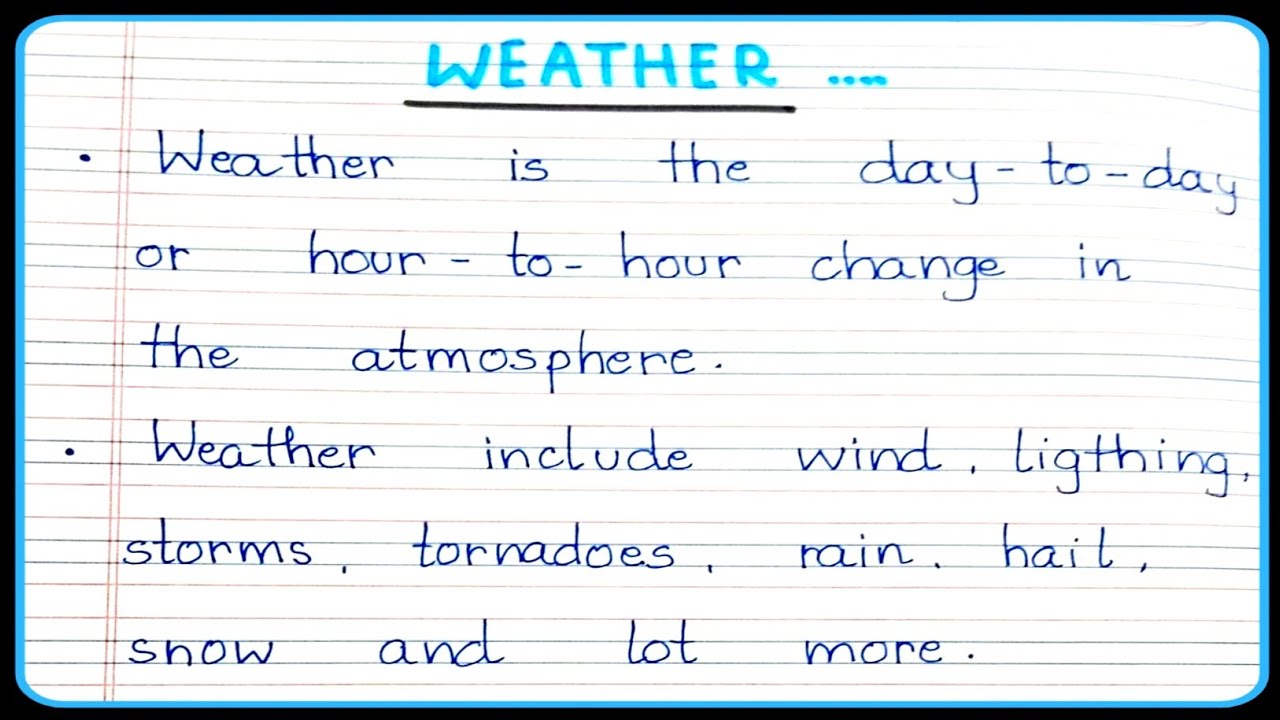 WEATHER ....
• Weather is the day-to-day
or hour-to-hour change in
the atmosphere.
• Weather include wind, ligthing,
storms, tornadoes, rain, hail,
snow and lot more.